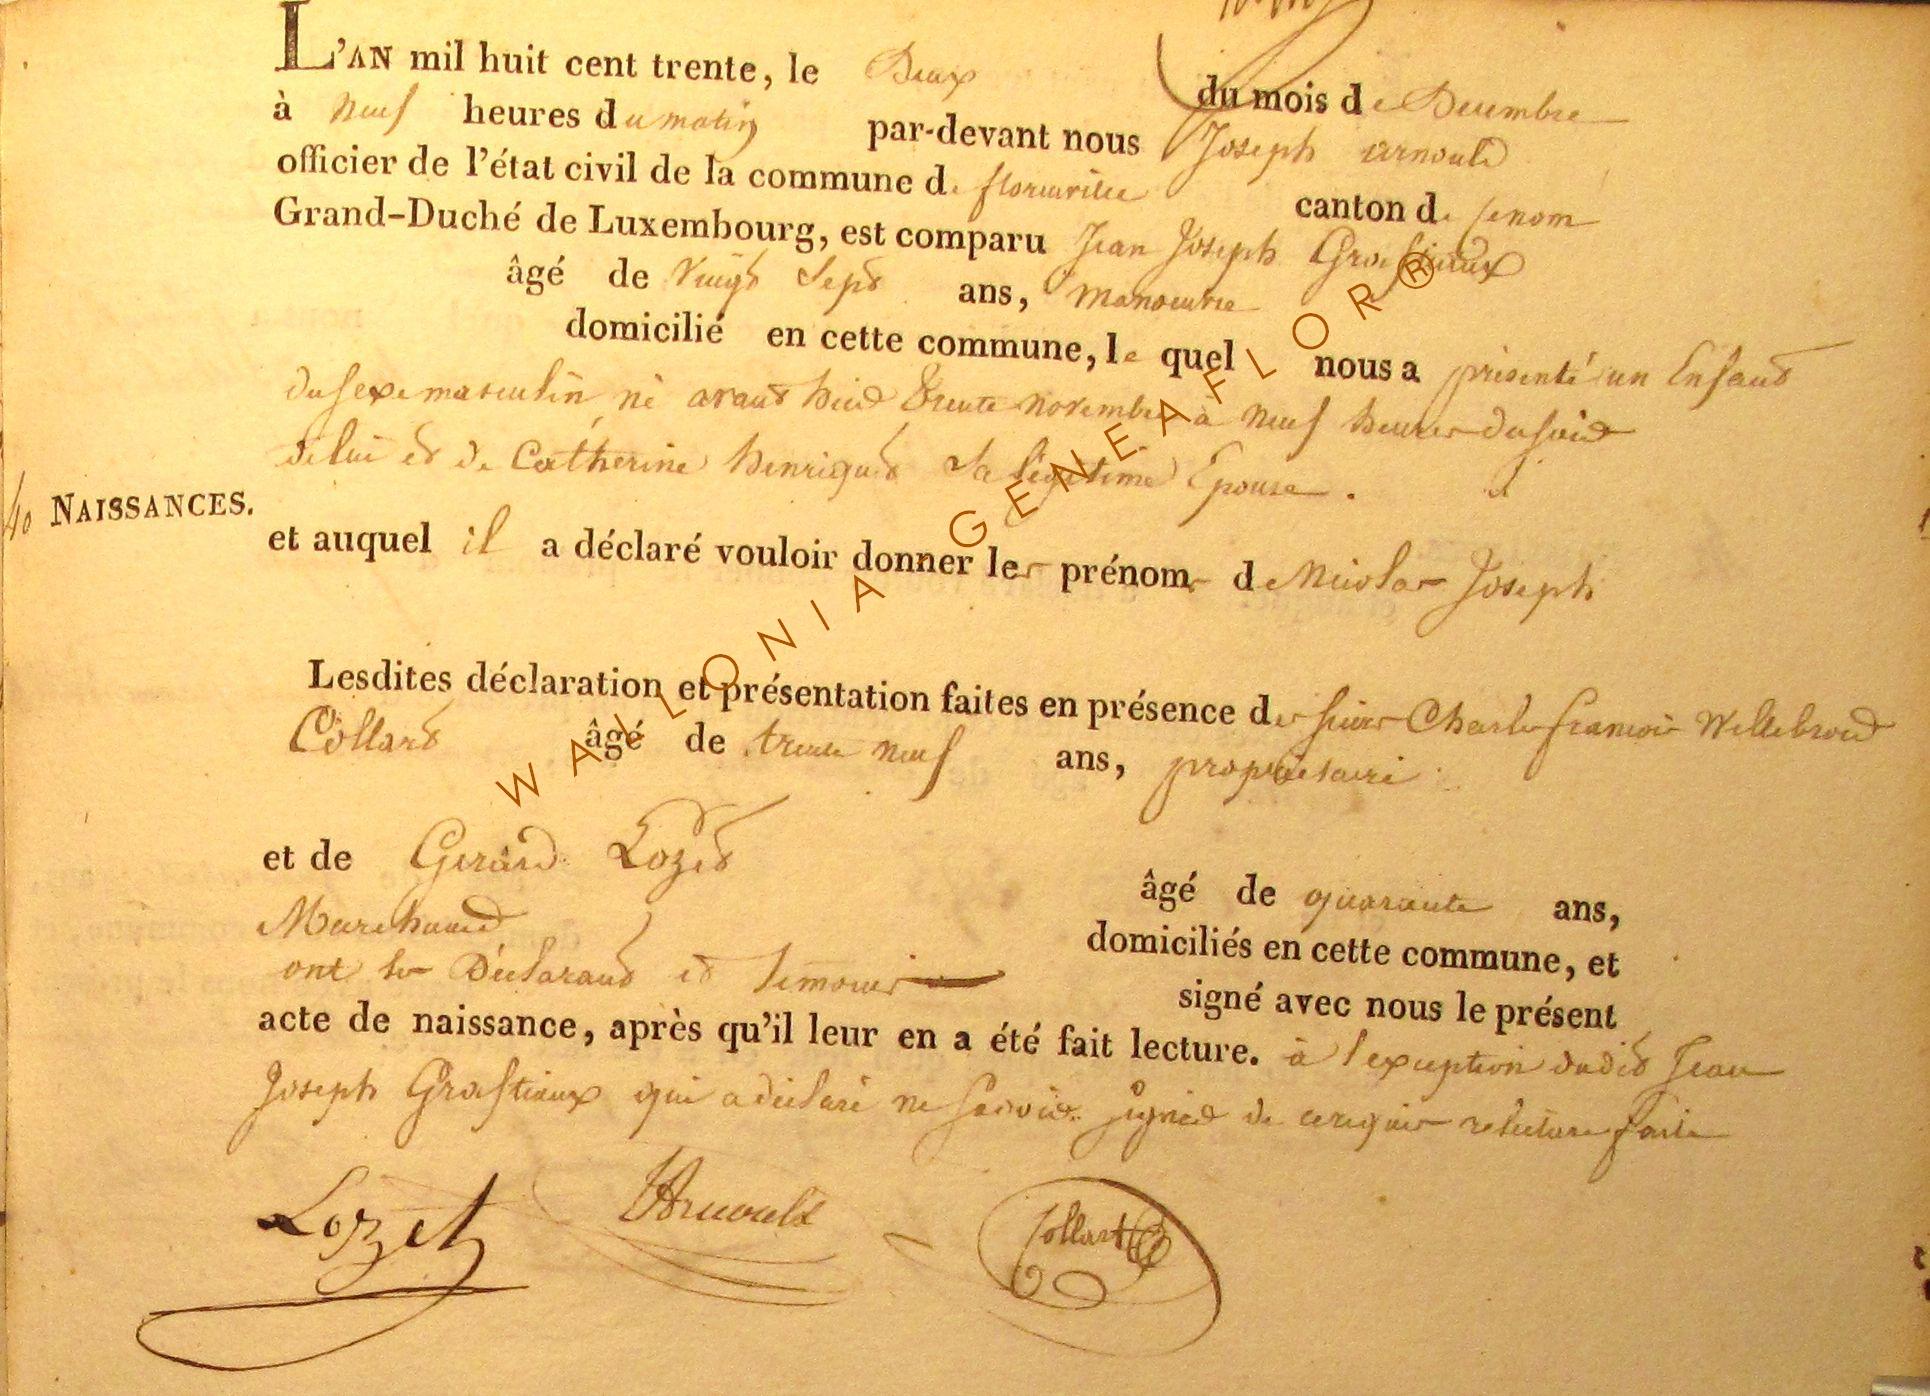 L'AN mil huit cent trente, le Deux du mois de Decembre
à neuf heures du matin par-devant nous Joseph arnould
officier de l'état civil de la commune de florenville canton de
Grand-Duché de Luxembourg, est comparu Jean Joseph Grostiaux
âgé de Vingt Sept ans, manoeuvre
domicilié en cette commune, le quel nous a présenté un Enfant
du sexe masculin né avant hier trente novembre à neuf heures du soir
de lui et de Catherine henriquet Sa légitime Epouse.
40 NAISSANCES.
et auquel il a déclaré vouloir donner les prénoms de Nicolas Joseph
Lesdites déclaration et présentation faites en présence des sieurs Charles francois Willebrord
Collard âgé de trente neuf ans, propriétaire
et de Gerard Lozet âgé de quarante ans,
Marchand domiciliés en cette commune, et
ont les Déclarant et temoins signé avec nous le présent
acte de naissance, après qu'il leur en a été fait lecture. à l'exception dudit Jean
Joseph Grostiaux qui a déclaré ne Savoir signer de ce requis relecture faite
Lozet Arnould Collart
WALLONIA GENEAFLOR®